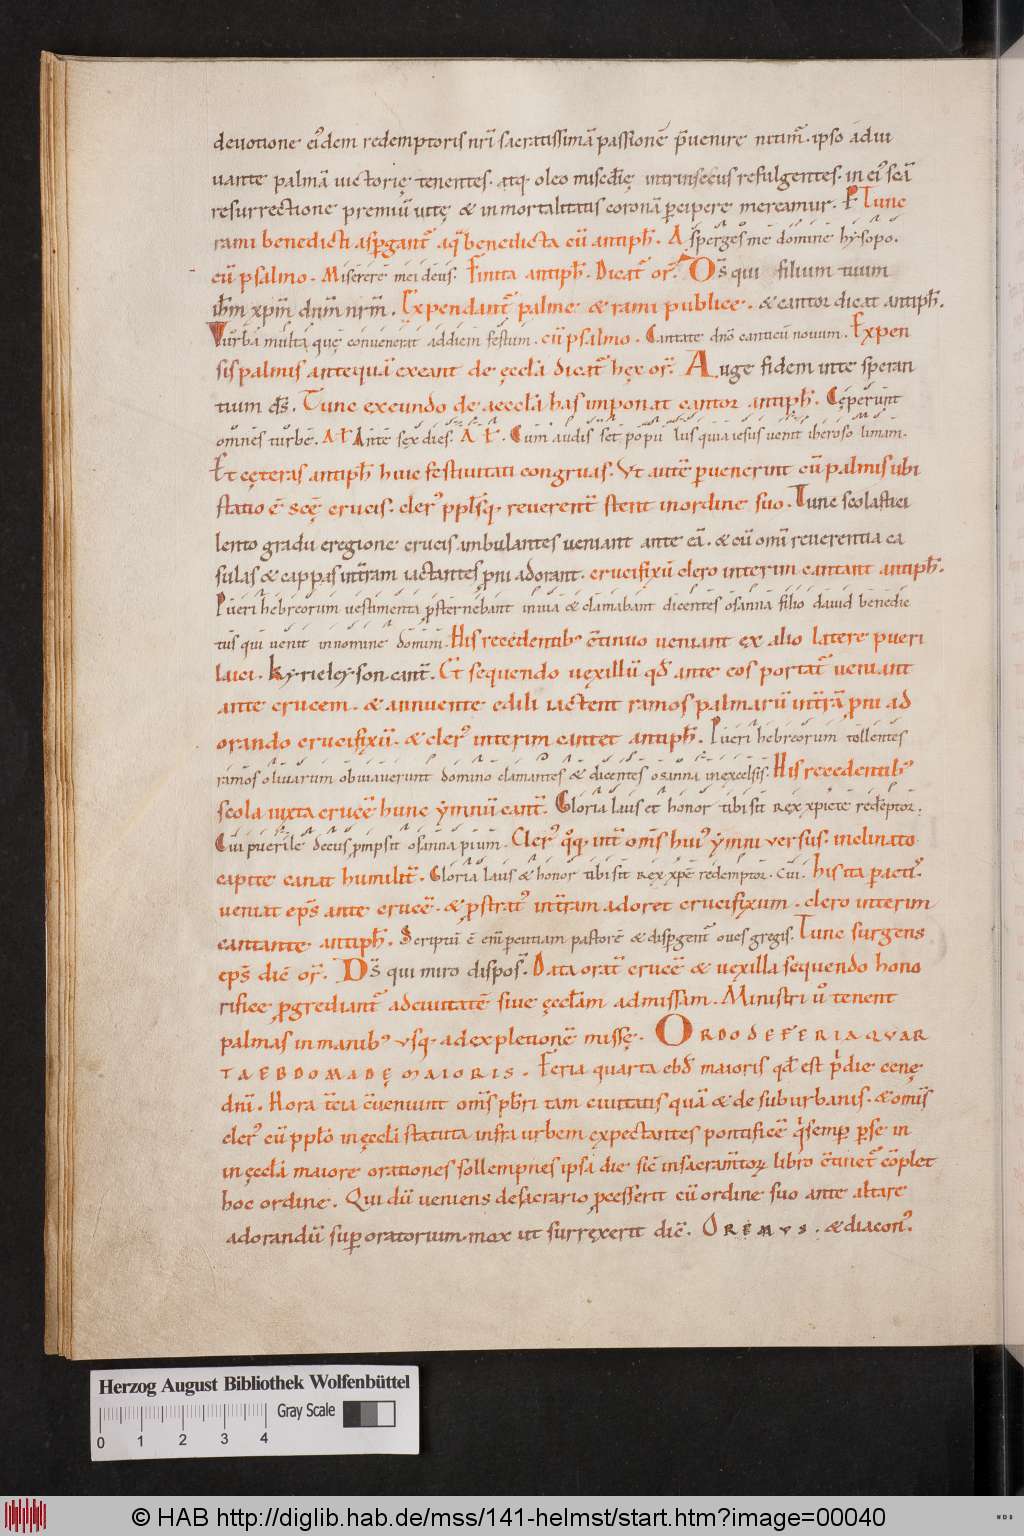 deuotione ei'dem redemptoris nr̄i sacratissimā passionē p̄uenire nitim̄. ipso adiu
uante palmā uictorię tenentes. atq. oleo misc̄dię intrinsecus refulgentes. in ei' sc̄a
resurrectione premiū uitę & inmortalitatis coronā p̄cipere mereamur. R Tunc
rami benedicti asp̄gant̄ aq̄ benedicta cū antiph̄. Asperges me domine hysopo.
cū psalmo. Miserere mei deus. Finita antiph̄. Dicat̄ or̄. D̄s qui filium tuum
ih̄m xp̄m dn̄m nr̄m. Expendant̄ palme & rami publice. & cantor dicat antiph̄.
Turba multa quę conuenerat ad diem festum. cū psalmo. Cantate dn̄o canticū nouum. Expen
sis palmis antequā exeant de ęccl̄a dicat̄ hęc or̄. Auge fidem inte speran
tium d̄s. Tunc exeundo de aeccl̄a has imponat cantor antiph̄. Cęperunt
omnes turbę. AŁ Ante sęx dies. AŁ. Cum audisset popu lus quia iesus uenit iherosolimam.
Et cęteras antiph̄ huic festiuitati congruas. Vt autē p̄uenerint cū palmis ubi
statio ē sc̄ę crucis. cler' ppl̄sq. reuerent̄ stent in ordine suo. Tunc scolastici
lento gradu e regione crucis ambulantes ueniant ante eā. & cū omī reuerentia ca
sulas & cappas intr̄am iactantes pn̄i adorant. crucifixū clero interim cantant antiph̄.
Pueri hebreorum uestimenta p̄sternebant in uia & clamabant dicentes osanna filio dauid benedic
tus qui uenit in nomine domini. His recedentib' c̄tinuo ueniant ęx alio latere pueri
laici. Kyrieleyson cant̄. Et sequendo uęxillū qd̄ ante eos portat̄ ueniant
ante crucem. & annuente edili iactent ramos palmarū intr̄ā pn̄i ad
orando crucifixū. & cler' interim cantet antiph̄. Pueri hebreorum tollentes
ramos oliuarum obuiauerunt domino clamantes & dicentes osanna in excelsis. His recedentib'
scola iuxta crucē hunc ẏmnū cant̄. Gloria laus et honor tibi sit rex xpicte redēptor.
Cui puerile decus pmpsit osanna pium. Cler' q̊q. int̄ om̄s hui' ẏmni versus. inclinato
capite canat humilit̄. Gloria laus & honor tibi sit rex xpē redemptor. cui. his ita p̄acti'.
ueniat ep̄s ante crucē. & p̄strat' intr̄am adoret crucifixum. clero interim
cantante antiph̄. Scriptū ē eni pcutiam pastorē & disp̄gent̄ oues gregis. Tunc surgens
ep̄s dic̄ or̄. D̄s qui miro dispos̄. Data orat̄ crucē & uęxilla sequendo hono
rifice p̄grediant̄ ad ciuitatē siue ęccl̄am admissam. Ministri u' tenent
palmas in manib' usq. ad expletionē missę. ORDO DE FERIA QVAR
TA EBDOMADĘ MAIORIS. Feria quarta ebd̄ maioris qd̄ est p̄die cenę
dn̄i. Hora t̄cia c̄ueniunt om̄s p̄bri tam ciuitatis quā & de suburbanis. & omīs
cler' cū ppl̄o in ęccl̄i statuta infra urbem ęxpectantes pontificē q̄ semp p̄se in
in ęccl̄a maiore orationes sollempnes ipsa die sic̄ in sacram̄torꝝ libro c̄tinet̄ cōplet
hoc ordine. Qui dū ueniens de sacrario p̄cesserit cū ordine suo ante altare
adorandū sup oratorium. mox ut surręxerit dic̄. OREMVS. & diacon'.
Herzog August Bibliothek Wolfenbüttel
Gray Scale
0 1 2 3 4
© HAB http://diglib.hab.de/mss/141-helmst/start.htm?image=00040